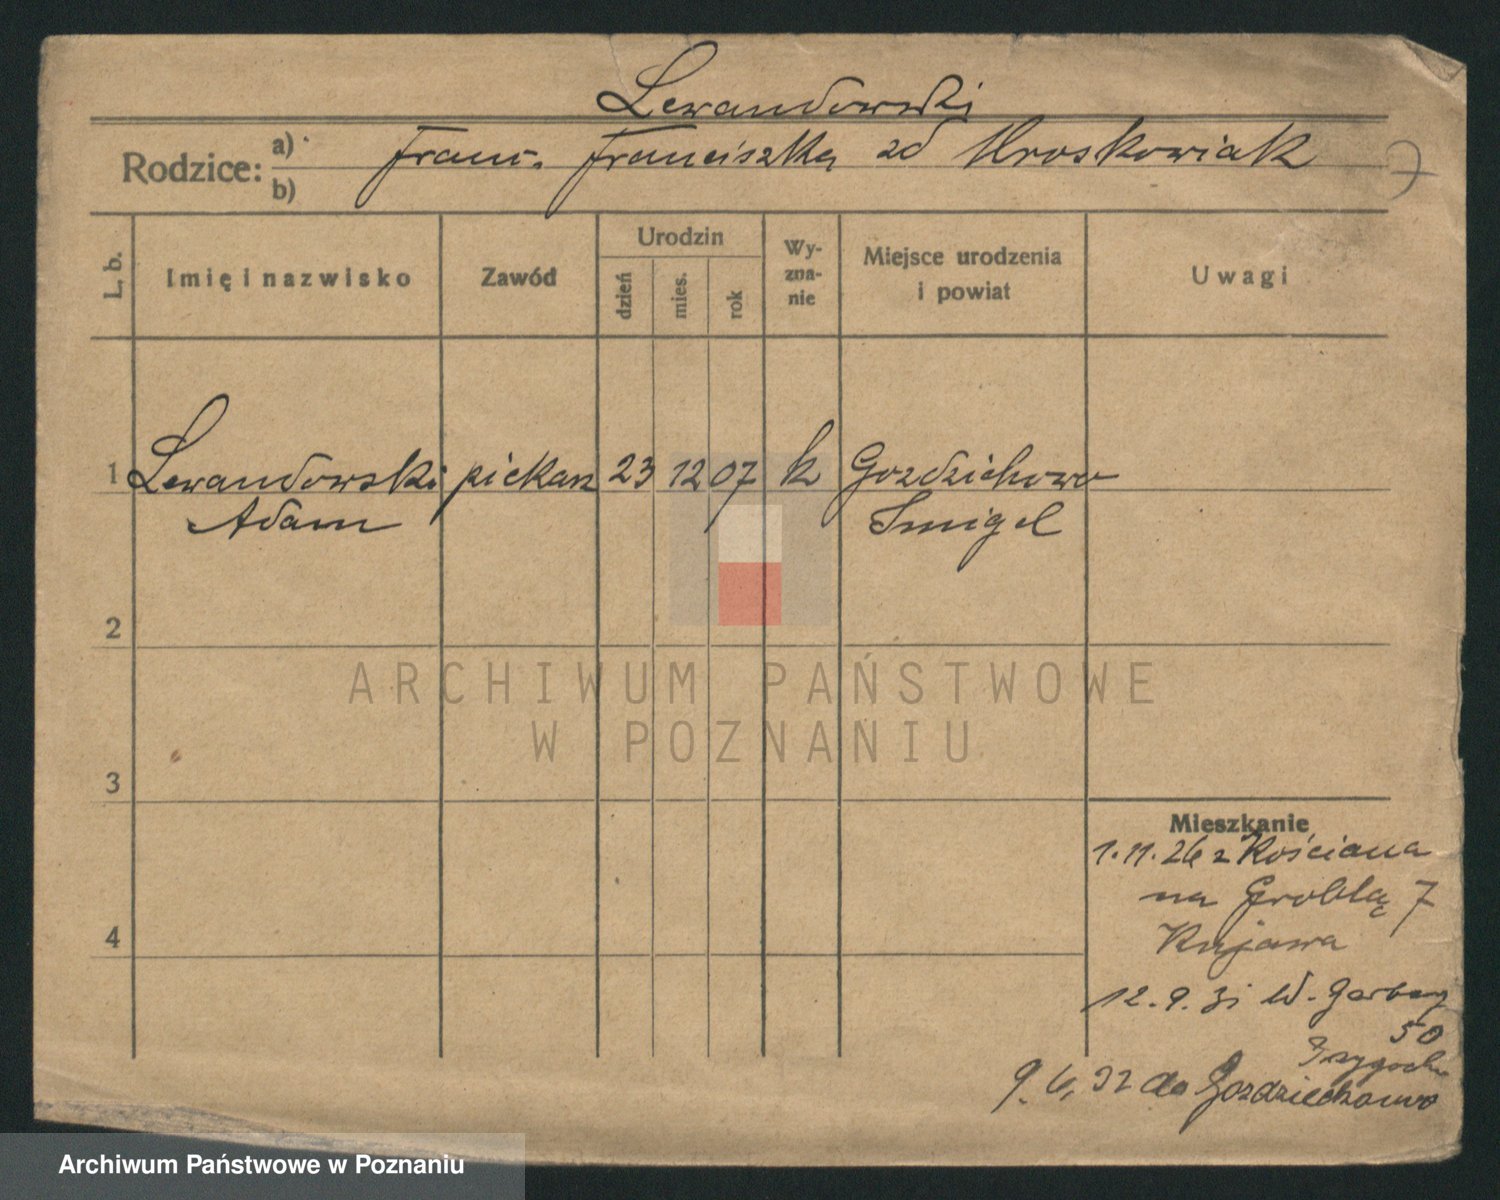 Lewandowski
Rodzice: a) Franc. Franciszka zd Mroskowiak
b)
7
L. b. Imię i nazwisko Zawód Urodzin dzień mies. rok Wyznanie Miejsce urodzenia i powiat Uwagi
1 Lewandowski piekarz 23 12 07 k Gozdzichowo
Adam Smigel
2
ARCHIWUM PAŃSTWOWE
W POZNANIU
3
Mieszkanie
1.11.26 z Kościana
na Groblą 7
Kujawa
4
12.9.31 W. Garbary
50
9.6.32 do Gozdziechowo
Archiwum Państwowe w Poznaniu